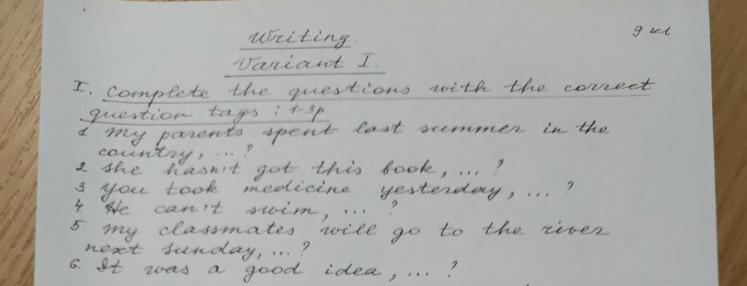 Writing
9 кл
Variant I.
I. Complete the questions with the correct
question tags :
1 My parents spent last summer in the
country, ... ?
2 She hasn't got this book, ... ?
3 You took medicine yesterday, ... ?
4. He can't swim, ... ?
5. My classmates will go to the river
next Sunday, ... ?
6. It was a good idea, ... ?